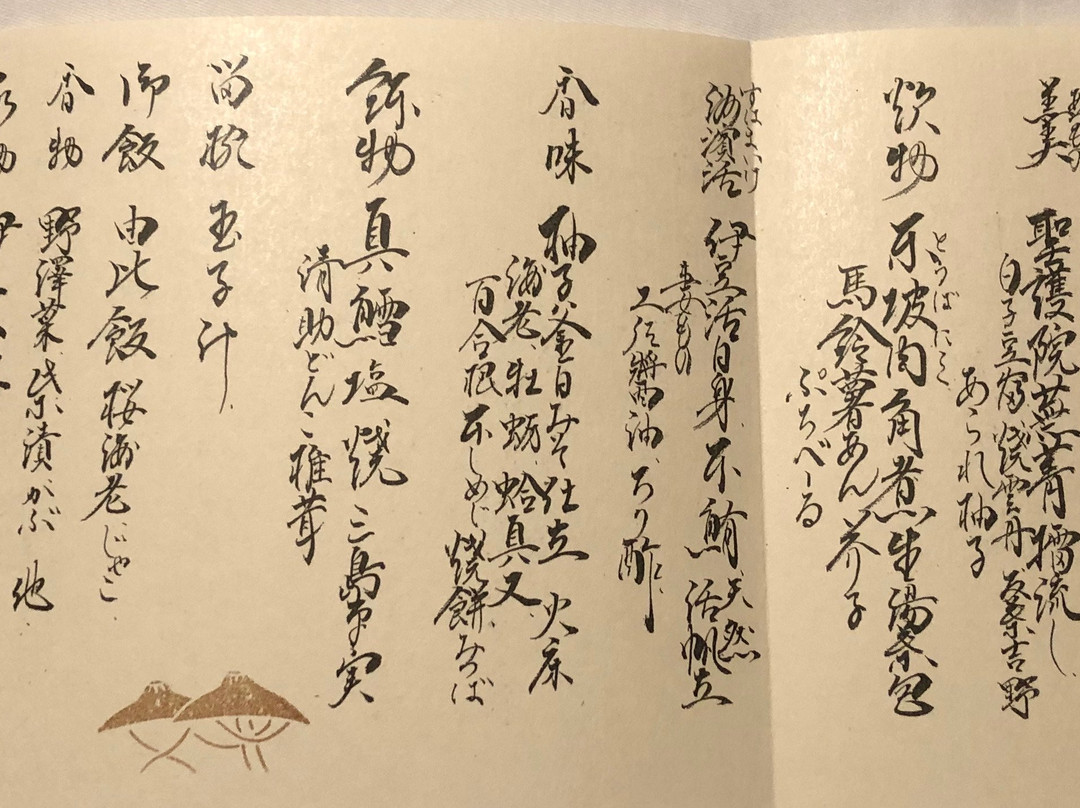 聖護院蕪菁擂流し
白子豆富 焼雲丹 葛素吉野
あられ柚子
炊物 東坡肉角煮 生湯葉包
とうばにく
馬鈴薯あん 芥子
ぷちべーる
すはまいけ
洲濱活 伊豆活白身 本鮪 天然 活帆立
妻もの
土佐醤油 ちり酢
香味 柚子釜白みそ仕立 火床
海老 牡蛎 蛤真又
百合根 本しめじ 焼餅 みつば
鉢物 真鱈塩焼 三島市実
清助どんこ椎茸
留椀 玉子汁
御飯 由比飯 桜海老 じゃこ
香物 野澤菜 柴漬 がぶ 他